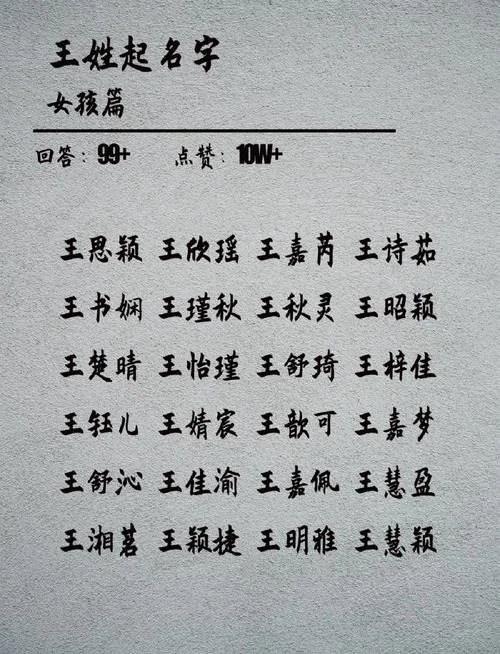 王姓起名字
女孩篇
回答：99+ 点赞：10W+
王思颖 王欣瑶 王嘉芮 王诗茹
王书娴 王瑾秋 王秋灵 王昭颖
王楚晴 王怡瑾 王舒琦 王梓佳
王钰儿 王婧宸 王歆可 王嘉梦
王舒沁 王佳渝 王嘉佩 王慧盈
王湘茗 王颖捷 王明雅 王慧颖